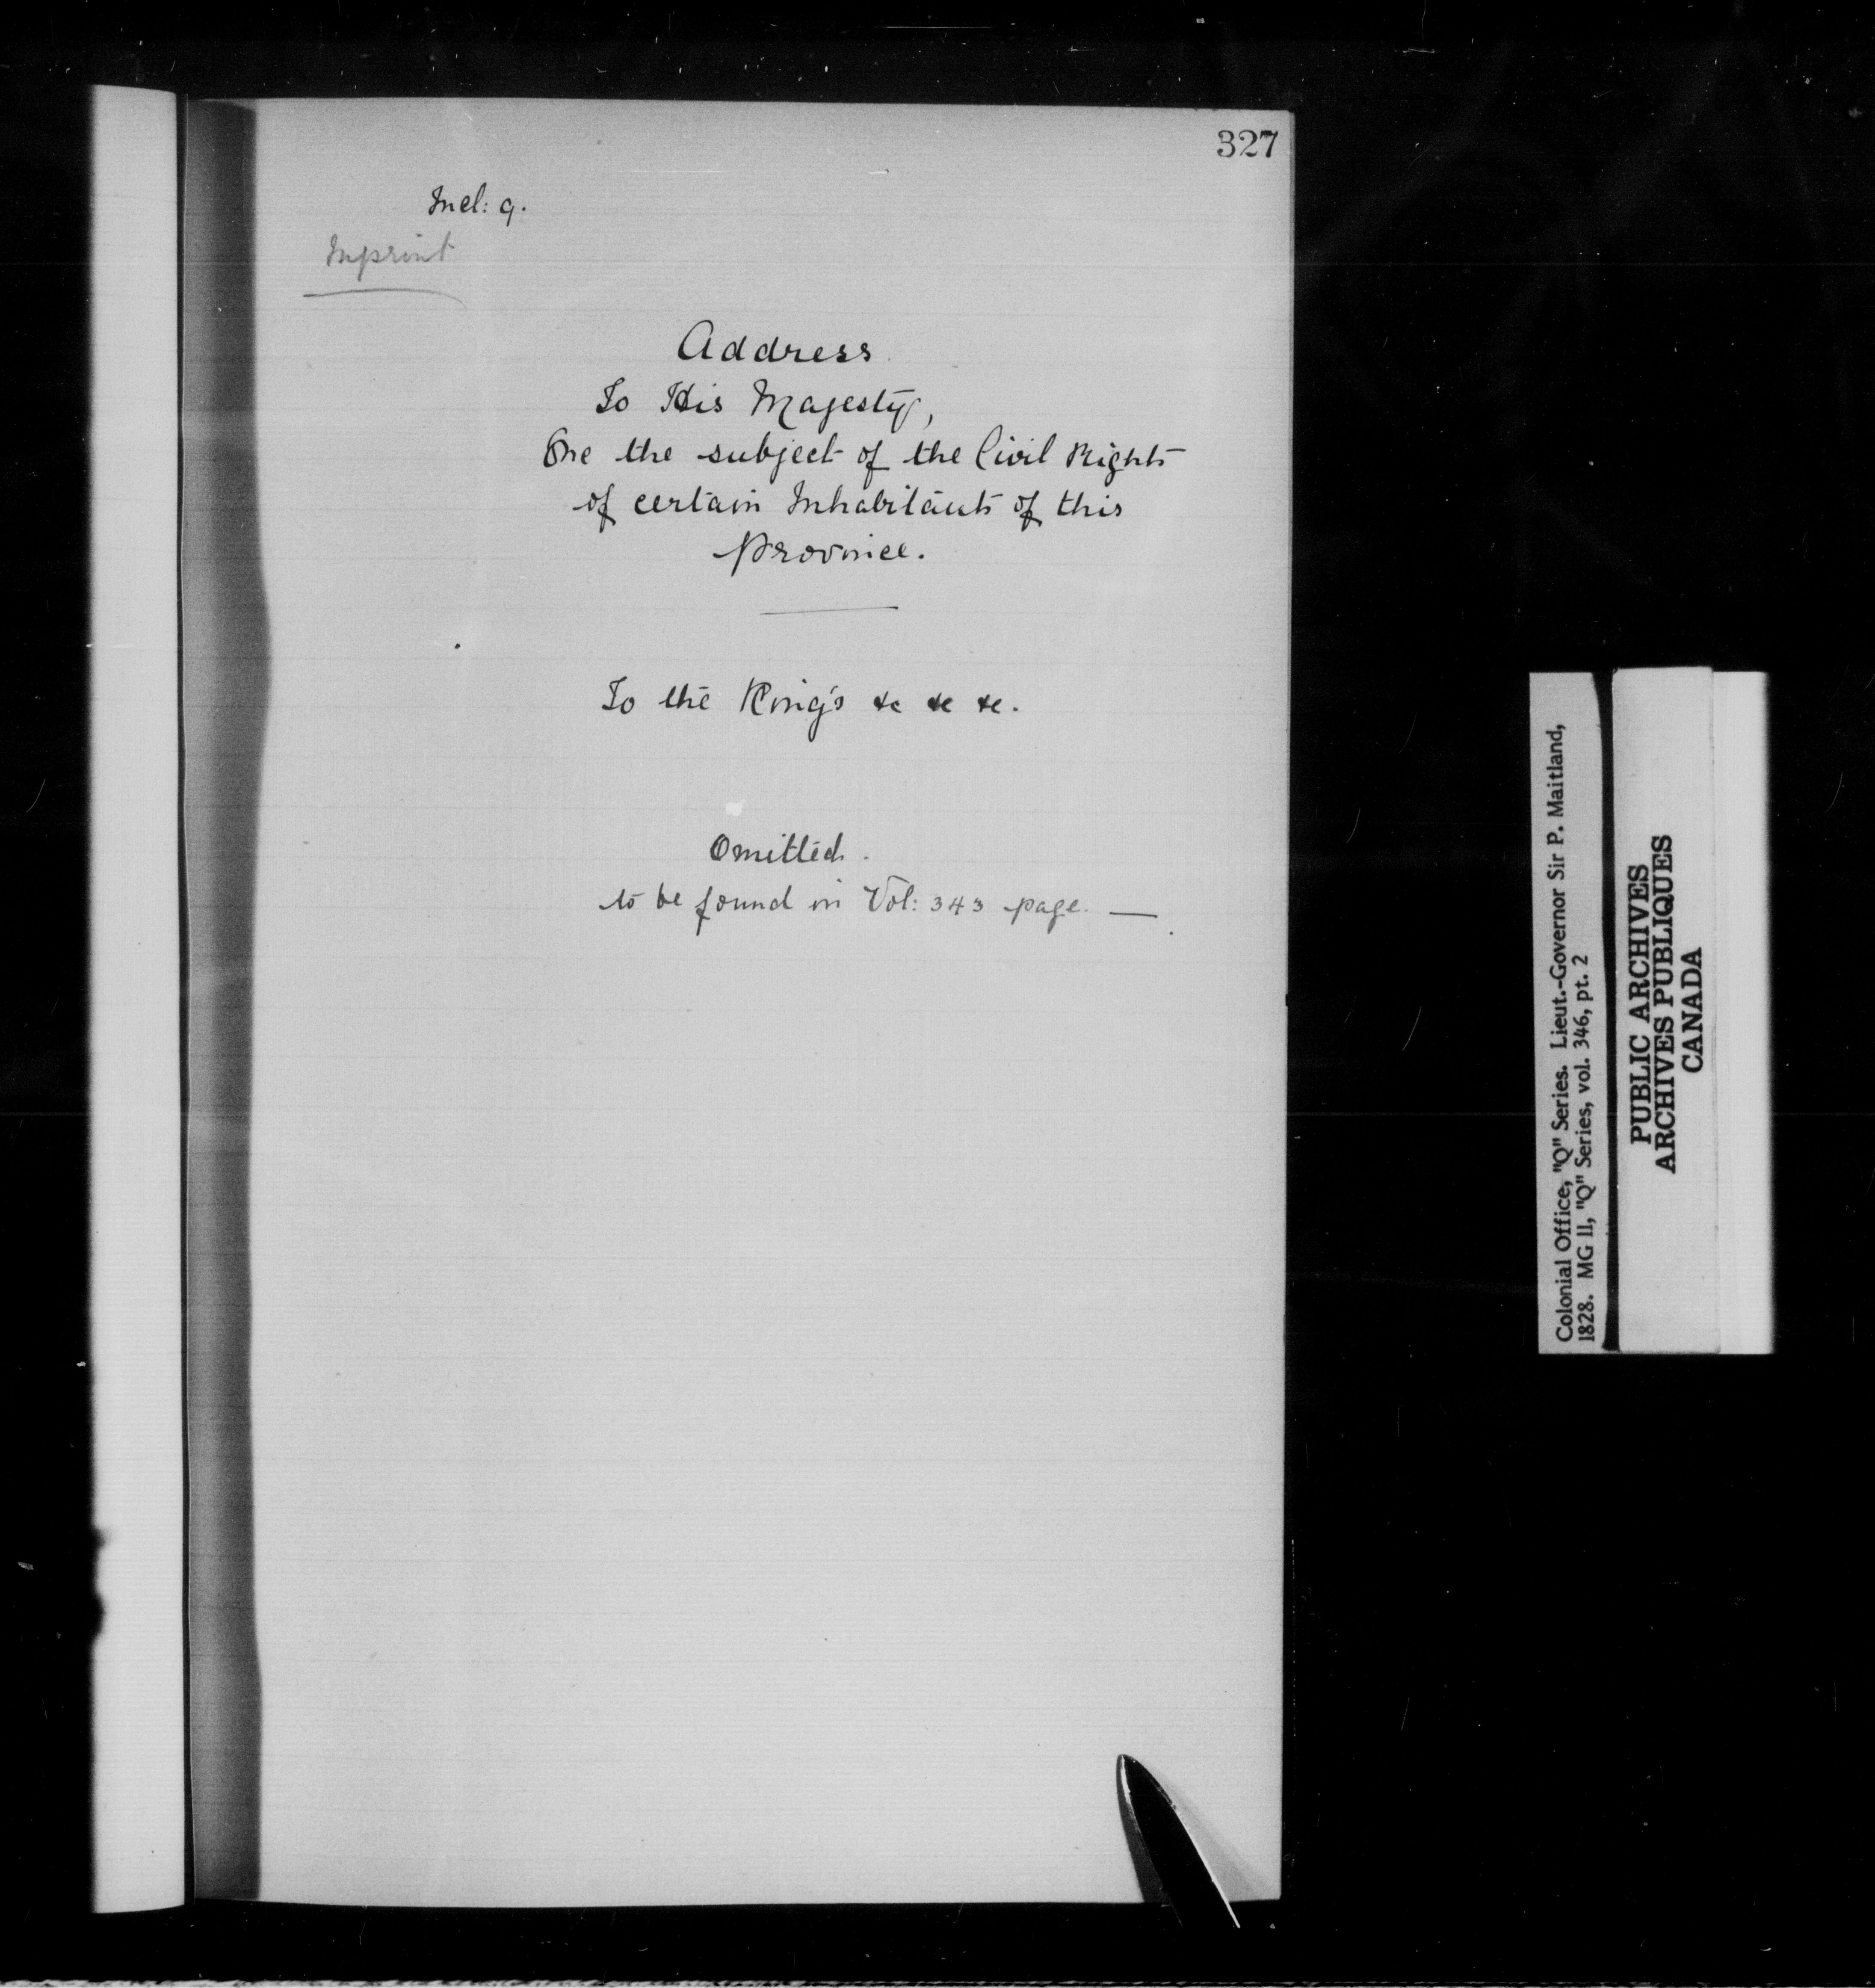 327
Incl: 9.
In print
Address
To His Majesty,
One the subject of the Civil Rights
of certain Inhabitants of this
Province.
To the King's &c &c &c.
Omitted.
to be found in Vol: 343 page. —
Colonial Office, "Q" Series. Lieut.-Governor Sir P. Maitland,
1828. MG 11, "Q" Series, vol. 346, pt. 2
PUBLIC ARCHIVES
ARCHIVES PUBLIQUES
CANADA